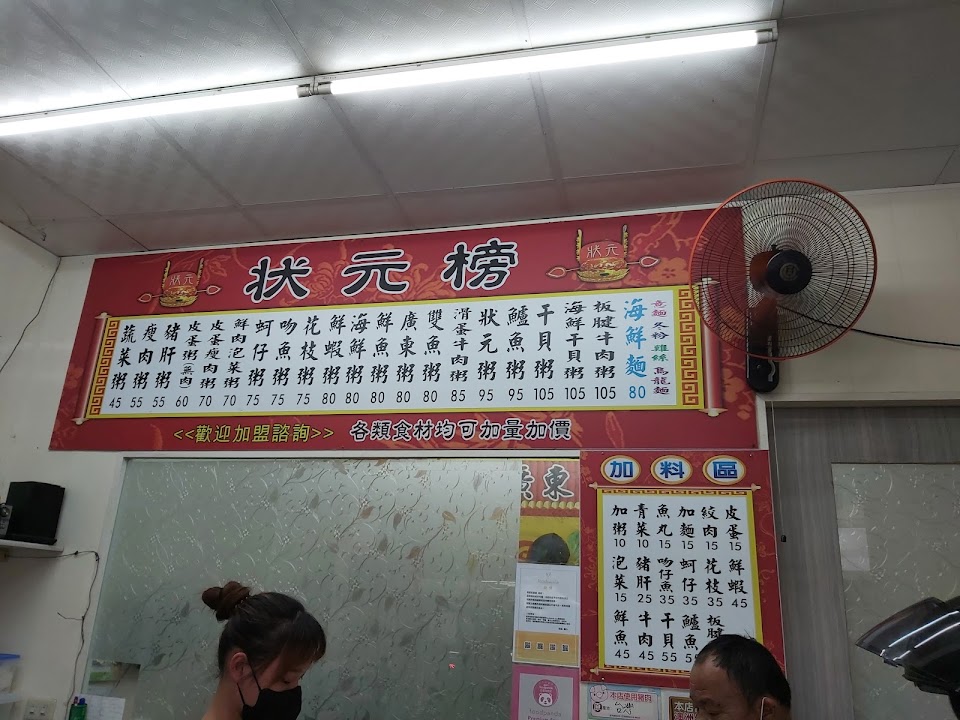 狀元
狀元榜
狀元
蔬菜粥 45
瘦肉粥 55
豬肝粥 55
皮蛋粥(無肉) 60
皮蛋瘦肉粥 70
鮮肉泡菜粥 70
蚵仔粥 75
吻魚粥 75
花枝粥 75
鮮蝦粥 80
海鮮粥 80
鮮魚粥 80
廣東粥 80
雙魚粥 80
滑蛋牛肉粥 85
狀元粥 95
鱸魚粥 95
干貝粥 105
海鮮干貝粥 105
板腱牛肉粥 105
海鮮麵 80
意麵 冬粉 雞絲 烏龍麵
<<歡迎加盟諮詢>> 各類食材均可加量加價
廣東
加料區
加粥 10
青菜 10
魚丸 15
加麵 15
絞肉 15
皮蛋 15
泡菜 15
豬肝 25
吻仔魚 35
蚵仔 35
花枝 35
鮮蝦 45
鮮魚 45
牛肉 45
干貝 55
鱸魚
板腱
foodpanda
本店使用豬肉
本店